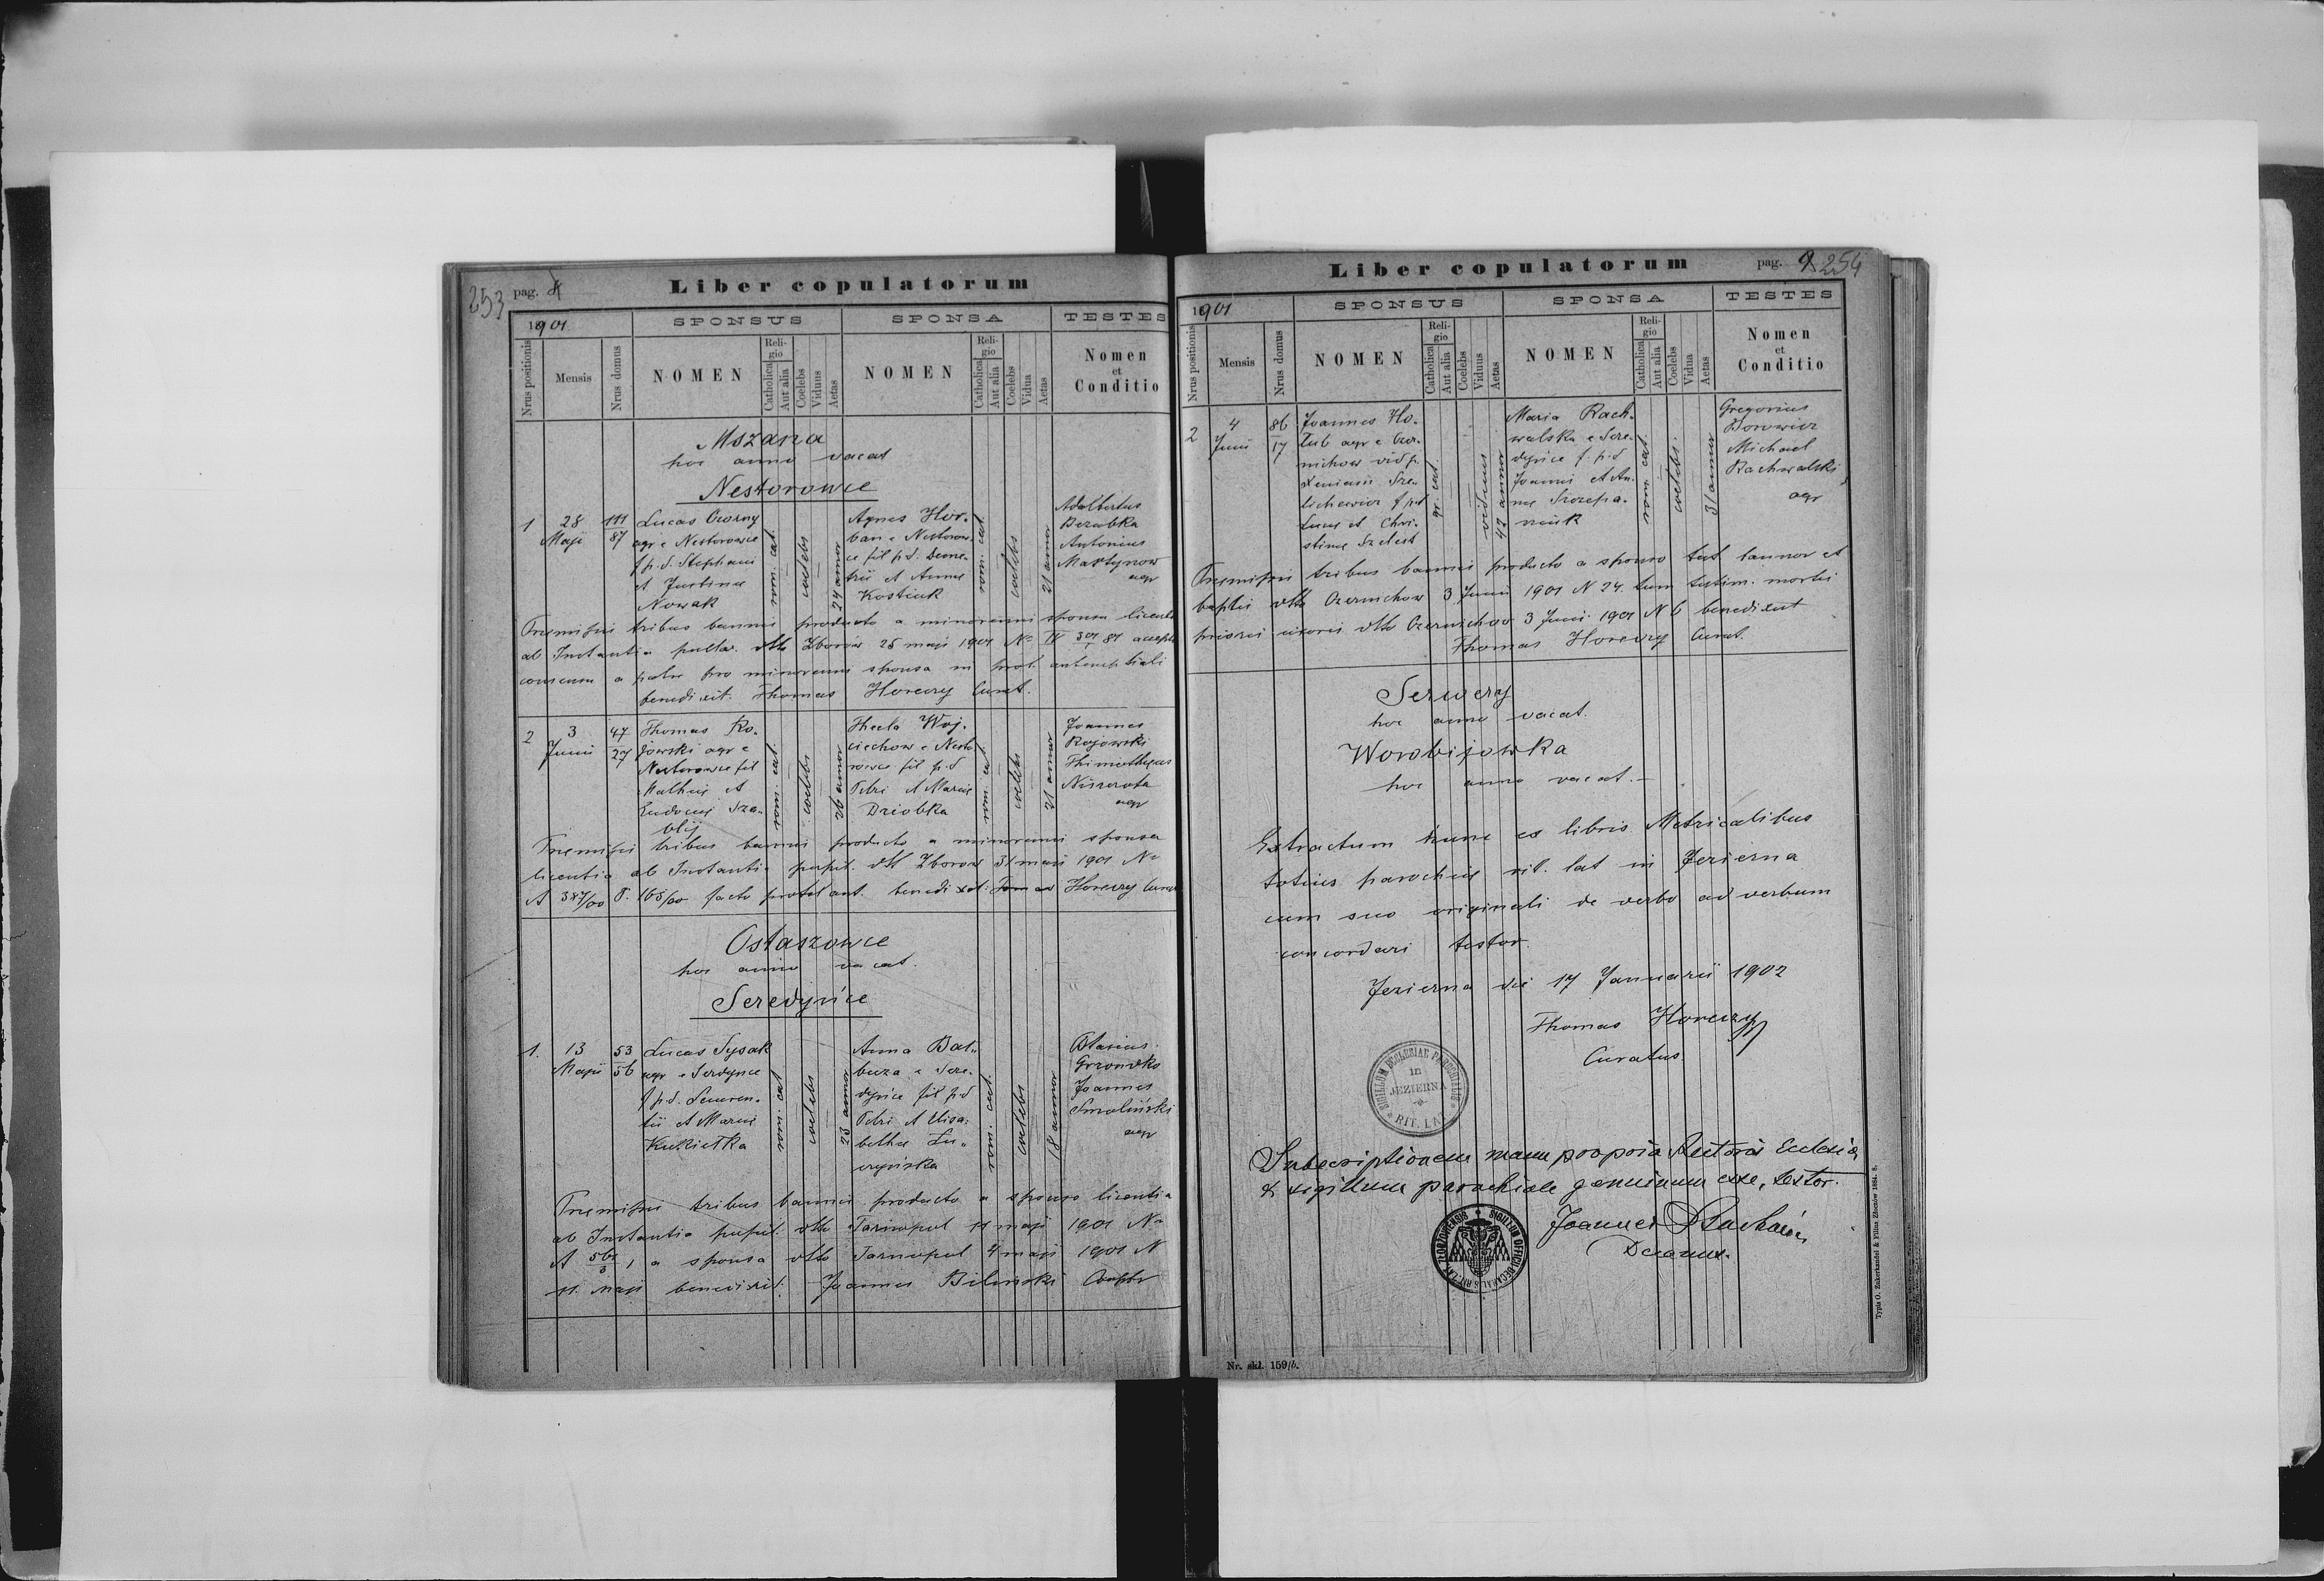 253 pag. 8
Liber copulatorum
1901
SPONSUS
SPONSA
TESTES
Nrus positionis
Mensis
Nrus domus
NOMEN
Religio
Catholica
Aut alia
Coelebs
Viduus
Aetas
NOMEN
Religio
Catholica
Aut alia
Coelebs
Vidua
Aetas
Nomen
et
Conditio
Mszana
hoc anno vacat
Nestorowce
1
28
Maji
111
87
Lucas Czorny
agr e Nestorowce
f p. d. Stephani
et Justinae
Nowak
rom. cat.
coelebs
24 annor
Agnes Hor-
ban e Nestorow-
ce fil p d. Deme-
trii et Annae
Kostiuk
rom. cat.
coelebs
21 annor
Adalbertus
Bezubka
Antonius
Martynow
agr
Praemissis tribus bannis producto a minorenni sponsa licentia
ab Instantia pupillar. dtto Zborów 25 maji 1901 No IV 87 accepto
consensu a patre pro minorenni sponsa in prot. antenuptiali
benedixit. Thomas Horeczy Curat.
2
3
Junii
47
27
Thomas Ro-
jowski agr e
Nestorowce fil
Mathiae et
Eudociae Sza-
blij
rom. cat
coelebs
26 annor
Thecla Woj-
ciechow e Nesto
rowce fil p. d
Petri et Mariae
Dziobka
rom. cat
coelebs
21 annor
Joannes
Rojowski
Thimotheus
agr
Praemissis tribus bannis producto a minorenni sponsa
licentia ab Instantia pupil. dtto Zborow 31 maji 1901 No
A 387/00 P. 165/00 facto protol ant. benedixit Thomas Horeczy Curat
Ostaszowce
hoc anno vacat.
Seredyńce
1.
13
Maji
53
56
Lucas Sysak
agr e Serdynce
f p. d. Lauren-
tii et Mariae
Kukiełka
rom. cat
coelebs
23 annor
Anna Bal-
buza e Sere-
dyńce fil p d
Petri et Elisa-
bethae Lu-
czyńska
rom. cat.
coelebs
18 annor
Blasius
Grzondko
Joannes
Smoliński
agr
Praemissis tribus bannis producto a sponso licentia
ab Instantia pupil. dtto Tarnopol 11 maji 1901 No
A 1 a sponsa dtto Tarnopol 4 maji 1901 N
11. maji benedixit. Joannes Biliński Cooptr
Liber copulatorum
pag. 9 254
1901
SPONSUS
SPONSA
TESTES
Nrus positionis
Mensis
Nrus domus
NOMEN
Religio
Catholica
Aut alia
Coelebs
Viduus
Aetas
NOMEN
Religio
Catholica
Aut alia
Coelebs
Vidua
Aetas
Nomen
et
Conditio
2
4
Junii
86
17
Joannes Ho-
łub agr e Czer-
nichow vid p.
Xeniam Sze-
lichewicz f p d
Lucae et Chri-
stinae Szelest
gr. cat.
viduus
42 annor
Maria Rach-
walska e Sere-
dyńce f. p. d
Joannis et An-
nae Szczepa-
niuk
rom. cat.
coelebs.
31 annor
Gregorius
Borowicz
Michael
Rachwalski
agr
Praemissis tribus bannis producto a sponso test bannor et
baptis dtto Czernichow 3 Junii 1901 N 24. tum testim. mortis
prioris uxoris dtto Czernichow 3 Junii 1901 N 6 benedixit
Thomas Horeczy Curat.
Serwery
hoc anno vacat.
Worobijowka
hoc anno vacat.
Extractum hunc ex libris Metricalibus
totius parochiae rit. lat in Jezierna
cum suo originali de verbo ad verbum
concordari testor.
Jezierna die 17 Januarii 1902
Thomas Horeczy
Curatus.
SIGILLUM ECCLESIAE PAROCHIALIS
in
JEZIERNA
RIT. LAT.
Subscriptionem manu propria Rectoris Ecclesia
& sigillum parochiale genuinum esse, testor.
Joannes
Decanus.
SIGILLUM OFFICII DECANALIS RIT. LAT. ZBOROVIENSIS
Nr. skł. 159/b.
Typis O. Zukerkandel & Filius Złoczów 1884. 8.